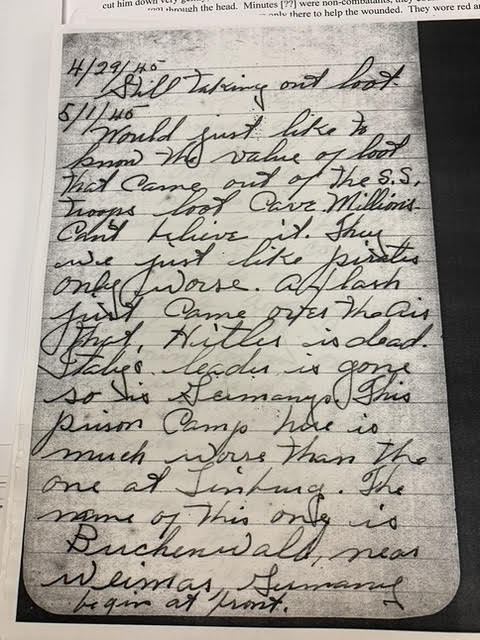 cut him down very
through the head.  Minutes [??] were non-combatants, they
only there to help the wounded.  They wore red
4/29/45
Still taking out loot.
5/1/45
Would just like to
know the value of loot
that came out of the S.S.
troops loot cave Millions.
Can't believe it. They
were just like pirates
only worse. A flash
just came over the air
that, Hitler is dead.
Italys leader is gone
so is Germanys. This
prison Camp here is
much worse than the
one at Limburg. The
name of this one is
Buchenwald, near
Weimar Germany
begin at front.